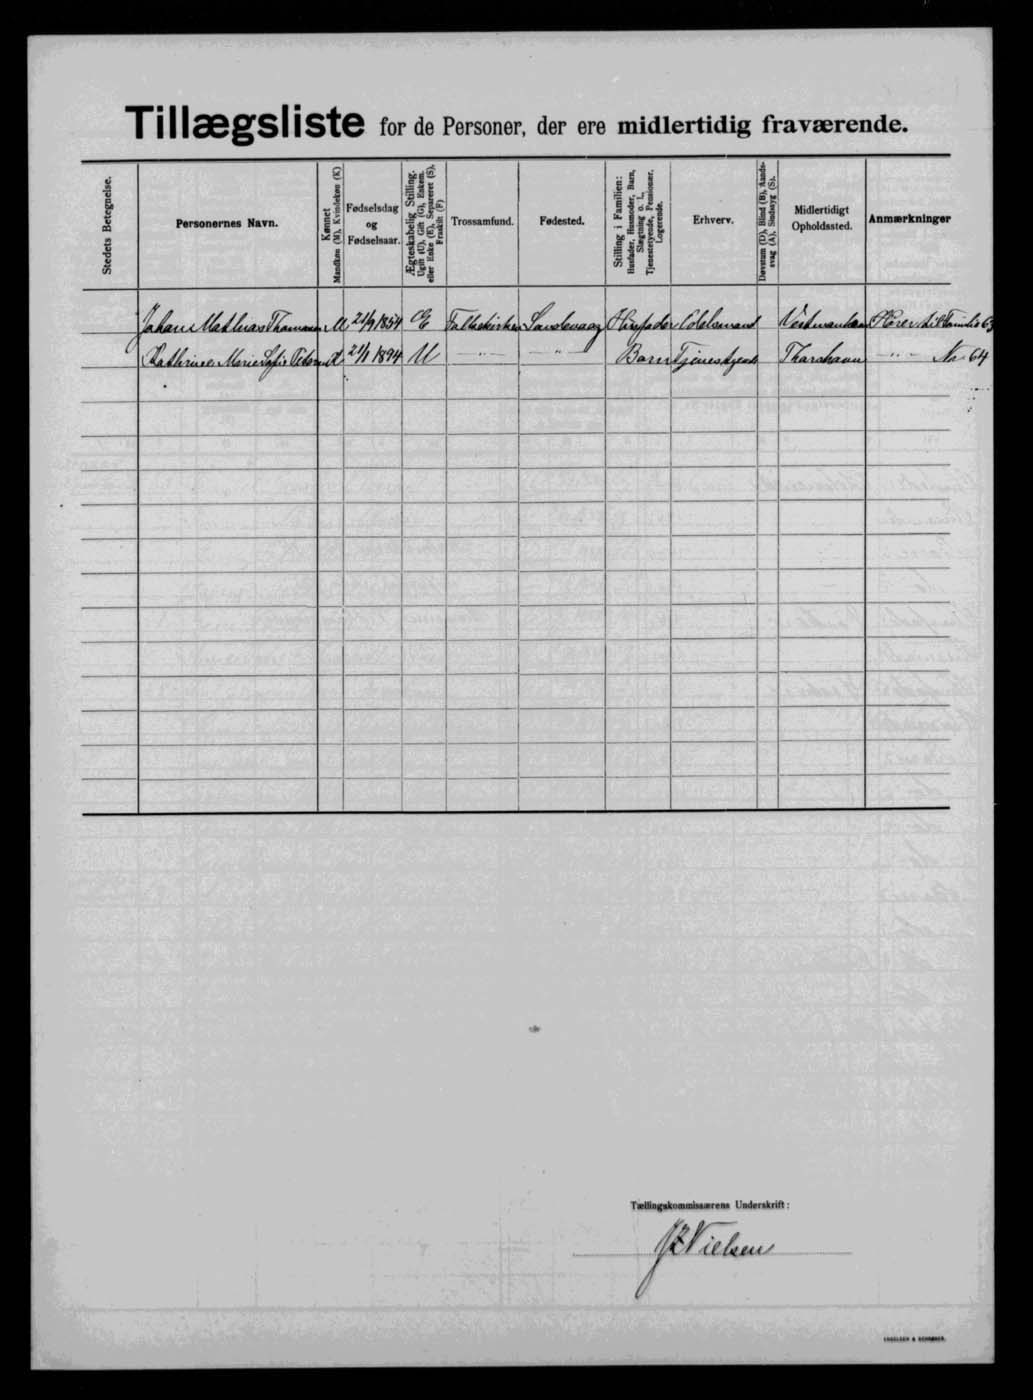 Tillægsliste for de Personer, der ere midlertidig fraværende.
Stedets Betegnelse.
Personernes Navn.
Kønnet
Mandkøn (M), Kvindekøn (K)
Fødselsdag
og
Fødselsaar.
Ægteskabelig Stilling.
Ugift (U), Gift (G), Enkem.
eller Enke (E), Separeret (S),
Fraskilt (F)
Trossamfund.
Fødested.
Stilling i Familien:
Husfader, Husmoder, Barn,
Slægtning o. l.,
Tjenestetyende, Pensionær,
Logerende.
Erhverv.
Døvstum (D), Blind (B), Aands-
svag (A), Sindssyg (S).
Midlertidigt
Opholdssted.
Anmærkninger
Johan Mathias Thomasen M 21/9 1854 E Folkekirken Sandevaag Husfader Odelsmand Vestmanhavn Hører til Familie 63
Kathrine Marie Sofie Petersen K 21/1 1894 U —"— —"— Barn Tjenestgende Thorshavn —"— Nr 64
Tællingskommissærens Underskrift:
Nielsen